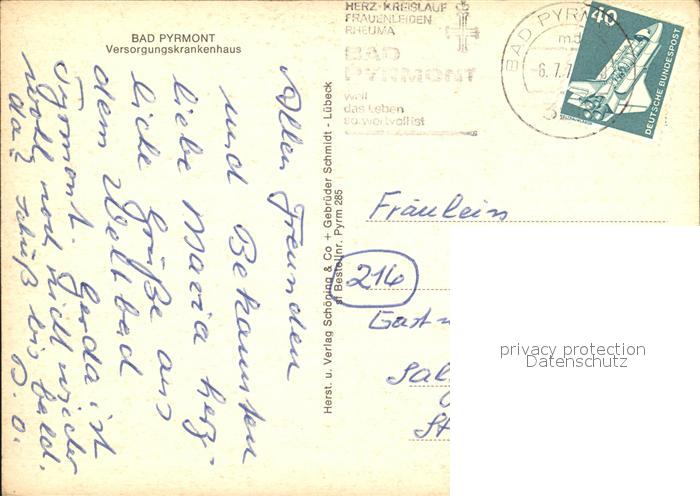 BAD PYRMONT
Versorgungskrankenhaus
Allen Freunden
und Bekannten
liebe Maria herz-
liche Grüße aus
dem Weltbad
Pyrmont. Gerda ist
wohl noch nicht wieder
da? Tschüß bis bald.
Herst. u. Verlag Schöning & Co + Gebrüder Schmidt - Lübeck
sf Bestellnr. Pyrm 285
HERZ-KREISLAUF
FRAUENLEIDEN
RHEUMA
BAD
PYRMONT
weil
das Leben
so wertvoll ist
BAD PYRM
-6.7.7
3
40
DEUTSCHE BUNDESPOST
Fräulein
216
Gast
Sal
St
privacy protection
Datenschutz